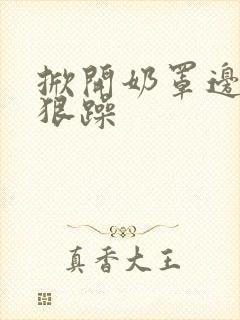 掀開奶罩邊
狠躁
真香大王